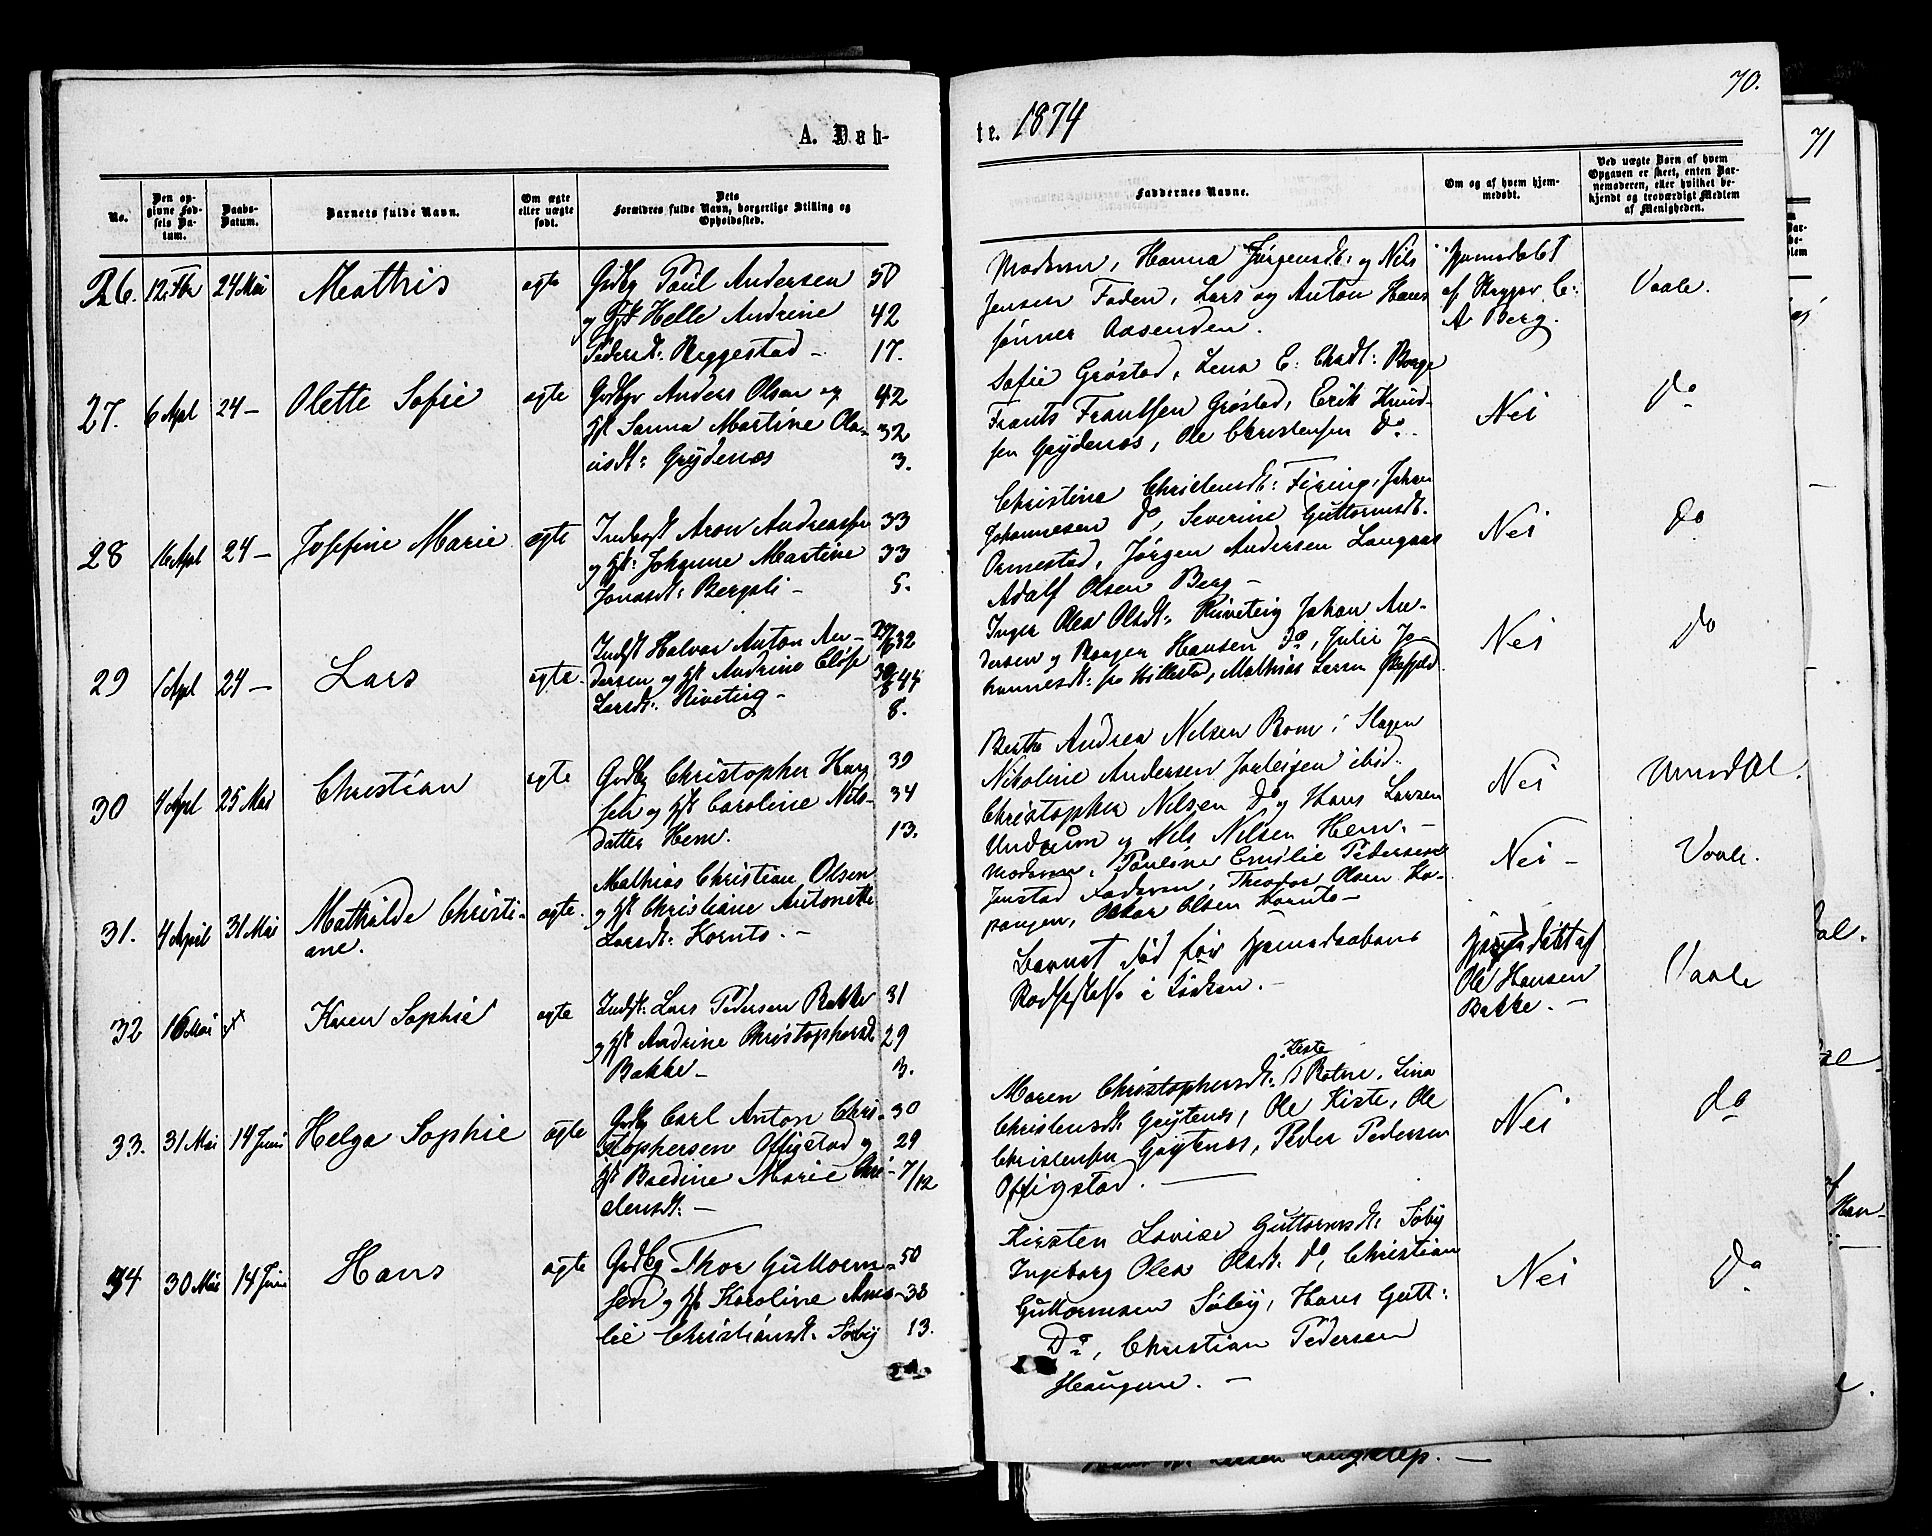 70.
71
A. Døb-
te. 1874
No.
Den opgivne Fødsels Datum.
Daabs-Datum.
Barnets fulde Navn.
Om ægte eller uægte født.
Dets Forældres fulde Navn, borgerlige Stilling og Opholdssted.
Faddernes Navne.
Om og af hvem hjemmedøbt.
Ved uægte Børn af hvem Opgaven er skeet, enten Barnemoderen, eller hvilket bekjendt og troværdigt Medlem af Menigheden.
26. 24 Mai Mathis ægte Grdbg Paul Andersen 50
og Helle Andrine 42
Pedersdt: Reggestad – 17.
Moderen, Hanna Jørgensdt: og Nils
Jensen Faden, Lars og Anton Hans
sønner Aasenden.
hjemdøbt
af
A Berg.
Vaale.
27. 6 Apl 24 – Olette Sofie ægte Anders Olsen og 42
Hst Sanna Martine Ola- 32
visdt: Grydenæs 3.
Sofie Grøstad, Lena C: Chrdt:
Frants Frantsen Grøstad, Erik Knud-
sen Grydenæs, Ole Christensen Do.
Nei
Do
28 16 Apl 24 – Josefine Marie ægte Aron Andreassen 33
og Hst: Johanne Martine 33
Jonasdt: Bergsli – 5.
Christine Christensdt: Firing, Johan
Johannesen Do, Severine Guttormsdt.
Ormestad, Jørgen Andersen Langaas
Adolf Olsen Berg –
Nei
Do
29 Apl 24 – Lars ægte. Indst Halvor Anton An- 32
dersen og Hst Andrine 44
Larsdt: Riveteig – 8.
Inger Olea Olsdt: Riveteig Johan An-
dersen og Hansen Do, Julie Jo-
hannesdt: fra Hillestad, Mathias
Nei
Do
30 4 Apl 25 Mai Christian ægte Grdbg Christopher Han 39
sen og Hst Caroline Nils- 34
datter Hem. 13.
Berthe Andrea Nilsen Rom i Slagen
Nikoline Andersen Jarleigen ibid.
Christopher Nilsen Do og Hans Larsen
Undrum og Nils Nilsen Hem. –
Nei
Undrdal.
31. 4 April 31 Mai Mathilde Christi-
ane. ægte. Mathias Christian Olsen
og Hst Christiane Antonette
Larsdt: Kornto. –
Moderen, Pauline Emilie Pedersen
Jonstad Faderen, Theodor Olsen Ko-
pangen, Oskar Olsen Kornto –
Nei –
Vaale.
32 16 Mai Karen Sophie ægte Indst: Lars Pedersen Bakke 31
og Hst Andrine Christophersdt 29
Bakke – 3.
Barnet død før Hjemmedaabens
Stadfæstelse i Kirken. –
hjemdøbt af
Ole Hansen
Bakke. –
Vaale
33. 31 Mai 14 Juni Helga Sophie ægte Grdbg Carl Anton Chri- 30
stophersen Offigstad og 29
Hst Bredine Marie Chri- 7/12
stensdt: –
Kiste
Maren Christophersdt: Rotne, Lina
Christensdt Grytenes, Ole Kiste, Ole
Christensen Grytenæs, Peder Pedersen
Offigstad. –
Nei
Do
34 30 Mai 14 Juni Hans ægte Grdbg Thor Guttorm- 50
sen og Hst Karoline Ama- 38
lie Christiansdt. Søby 13.
Kirsten Lovise Guttormsdt: Søby
Ingeborg Olea Olsdt. Do, Christian
Guttormsen Søby, Hans Gutt:
Do, Christian Pedersen
Haugene. –
Nei
Do